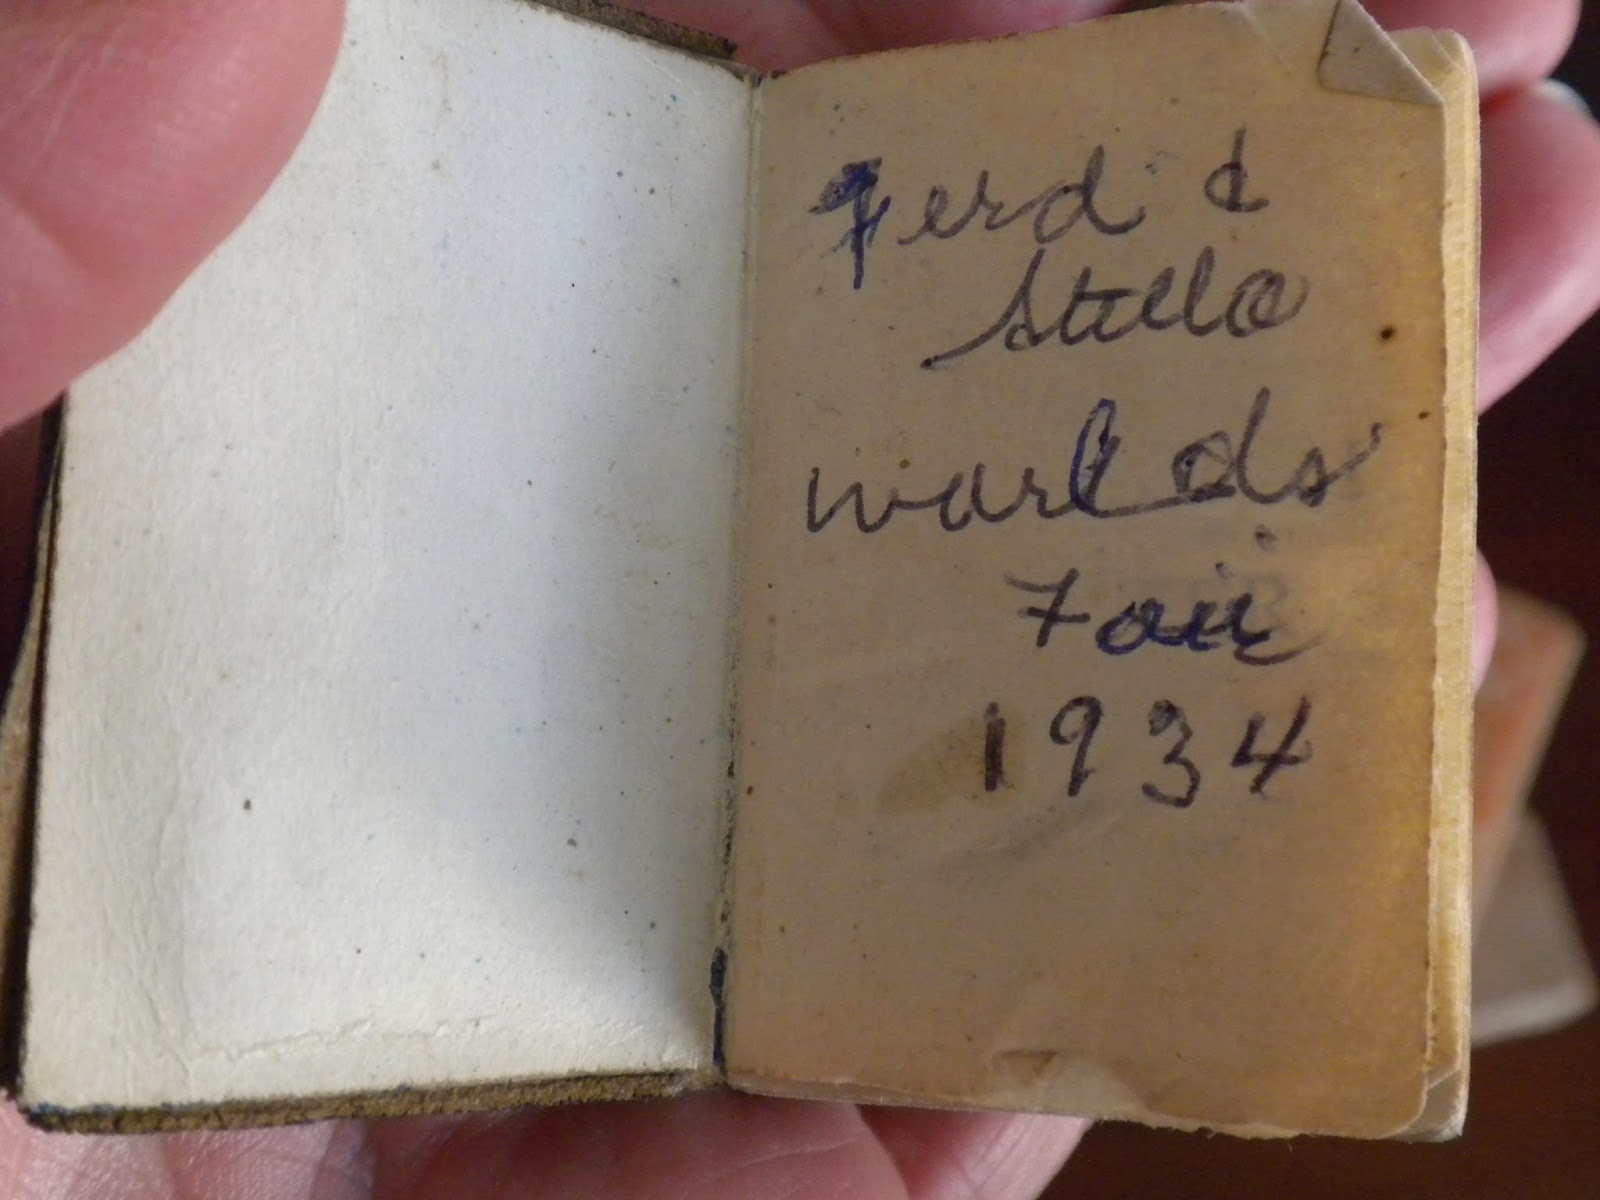 Ferd &
Stella
Worlds
Fair
1934